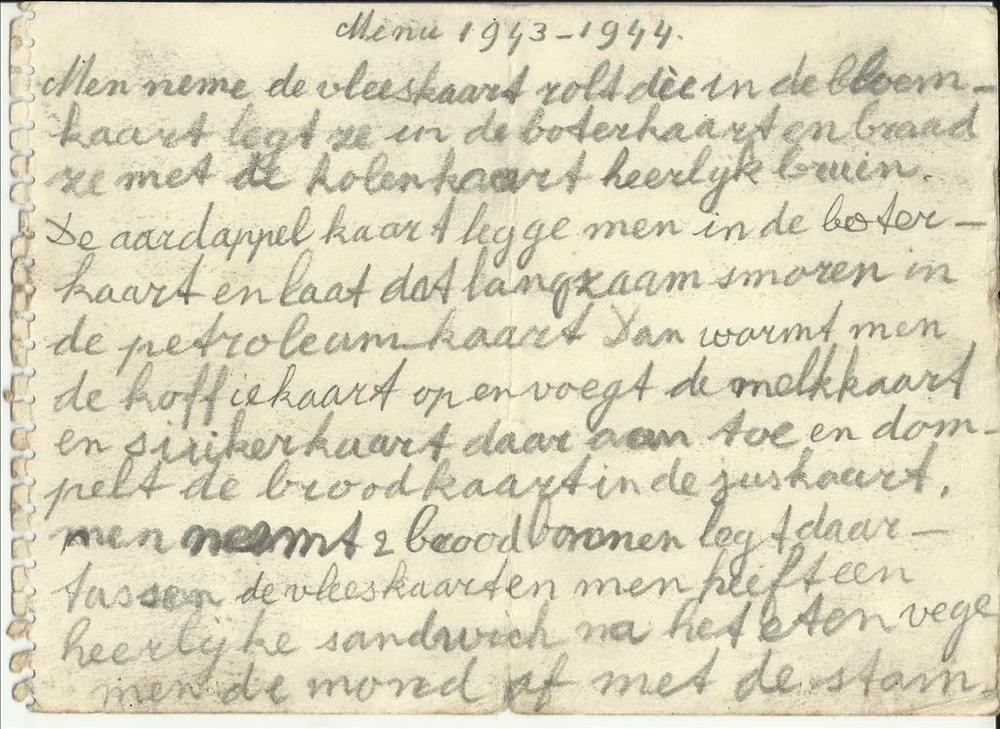 Menu 1943-1944.
Men neme de vleeskaart rolt die in de bloem-
kaart legt ze in de boterkaart en braad
ze met de kolenkaart heerlyk bruin.
De aardappelkaart legge men in de boter-
kaart en laat dat langzaam smoren in
de petroleumkaart Dan warmt men
de koffiekaart op en voegt de melkkaart
en suikerkaart daar aan toe en dom-
pelt de broodkaart in de juskaart,
men neemt 2 broodbonnen legt daar-
tussen de vleeskaarten men heeft een
heerlijke sandwich na het eten vege
men de mond af met de stam-